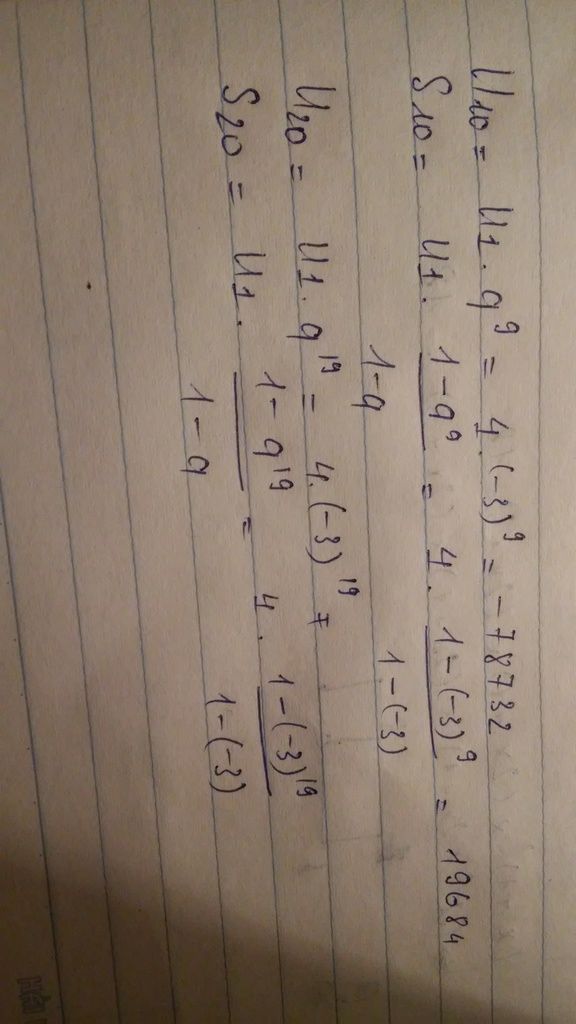 U10 = U1 . q^9 = 4 . (-3)^9 = - 78732
S10 = U1 . (1 - q^9)/(1-q) = 4 . (1 - (-3)^9)/(1-(-3)) = 19684
U20 = U1 . q^19 = 4. (-3)^19 =
S20 = U1 . (1 - q^19)/(1 - q) = 4 . (1-(-3)^19)/(1-(-3))